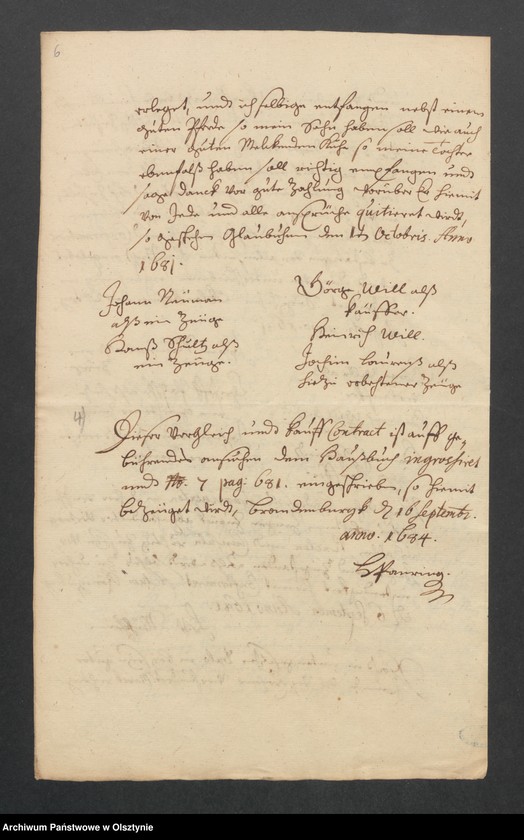 6
erleget, undt ich selbige entfangen nebst einem
guten Pferde so mein Sohn haben soll wie auch
einer guten Melckenden Kuhe so meine Tochter
ebenfalß haben soll richtig empfangen und
sage danck vor gute Zahlung worüber Er hiemit
von Jede und alle ansprüche quitieret wirdt,
so geschehen den Octobris. Anno
1681.
Johann Nauman
alß ein Zeuge
Hannß Schultz alß
ein Zeuge.
Görge Will alß
kauffer.
Heinrich Will.
Jochim Laurenß alß
hiezu erbethener Zeuge
4)
Dieser Vergleich undt kauff Contract ist auff ge-
bührendes ansuchen dem Haußbuch ingrossiret
undt No. 7 pag: 681. eingeschrieben, so hiemit
bezeuget wirdt, Brandenburgk d. 16 Septembr.
anno. 1684.
Archiwum Państwowe w Olsztynie